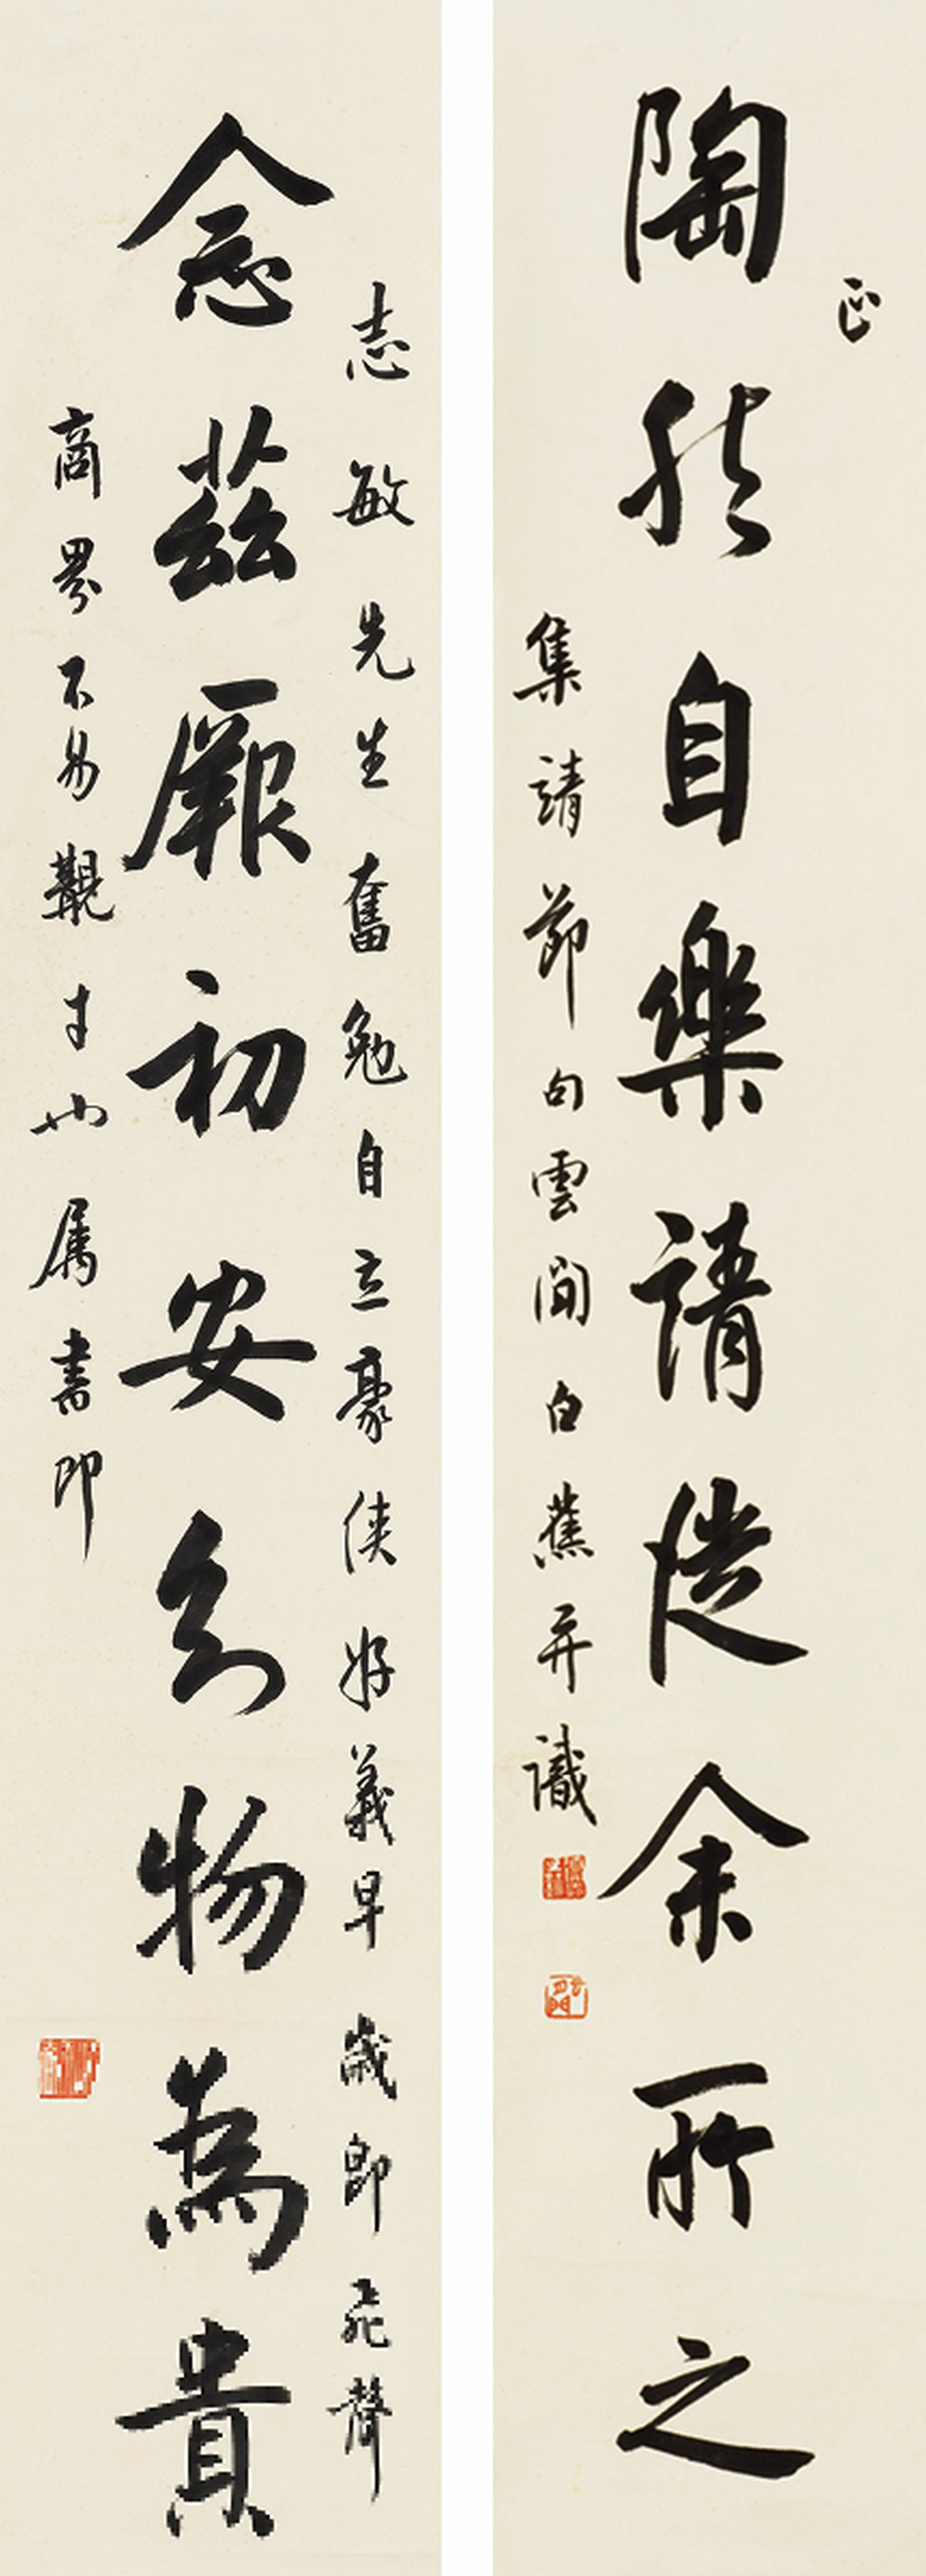 志敏先生奮勉自立豪俠好義早歲即飛聲
念茲厥初安知物為貴
商界不易覯才也属書即
正
陶然自樂請從余所之
集靖節句雲間白蕉并識